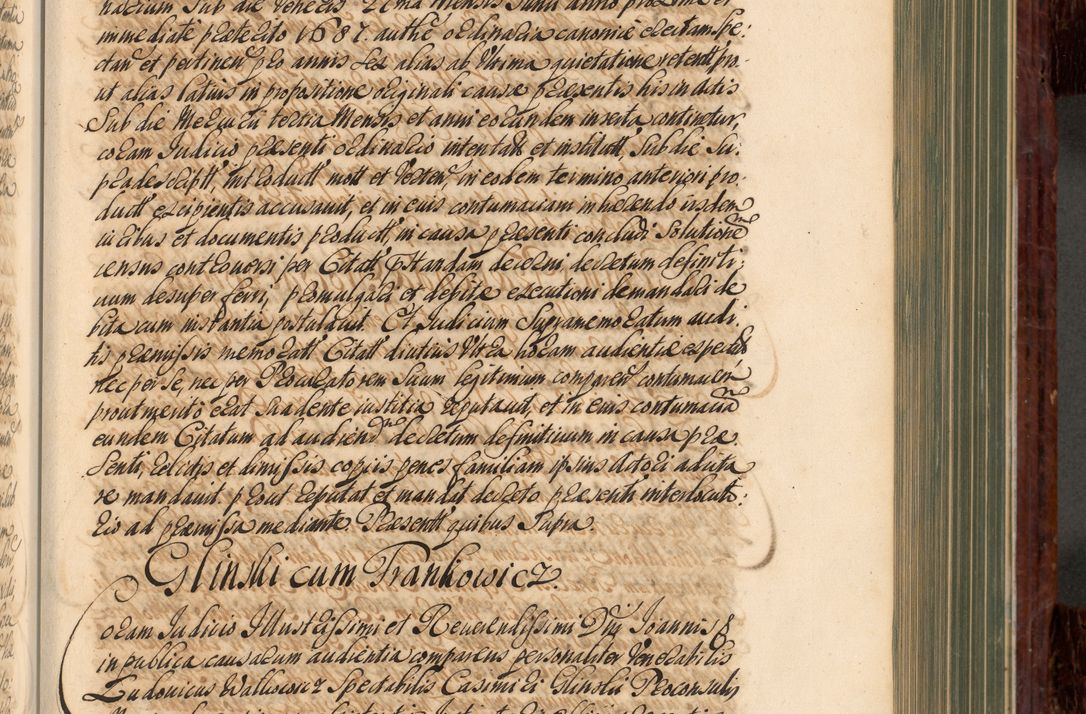 nactum Sub die Veneris 21ma Mensis Junii anno proxime et
immediate præterito 1687. authē ordinaria canonice erectam spe:
ctan et pertinen pro annis sex alias ab Vltima quietatione retenti pro
ut alias latius in propositione originali causæ præsentis hisin actis
Sub die Mercurii tertia Mensis et anni eorundem inserta continetur,
coram Judicio præsenti ordinario intentatt et institutt, Sub die Su:
pradescriptt, introductt mott et Verten, in eodem termino anteriori pro:
ductt excipientis accusavit, et in eius contumaciam inhærendo iisdem
iuribus et documentis productt, in causa præsenti concludi Solutionem
census controversi per Citatt præstandam decerni, decretum definiti:
vum desuper ferri, promulgari et debitæ executioni demandari de
bita cum instantia postulavit. Et Judicium Supramemoratum audi:
tis præmissis memoratt Citatt diutius Vltra horam audientiæ expectatt
nec per se, nec per Procuratorem Suum legitimum comparen contumacem
prout merito erat Suadente iustitia reputavit, et in eius contumaciam
eundem Citatum ad audiendum decretum definitivum in causa præ
senti, relictis et dimissis copiis penes familiam ipsius Actori adcita
re mandavit prout reputat et mandat decreto præsenti interlocuto:
rio ad præmissa mediante. Præsentt quibus Supra.
Glinski cum Frankowicz
Coram Judicio Illustrissimi et Reverendissimi Dni Joannis &
in publica causarum audientia comparens personaliter Venerabilis
Ludovicus Wallucowicz Spectabilis Casimiri Glinski Proconsulis